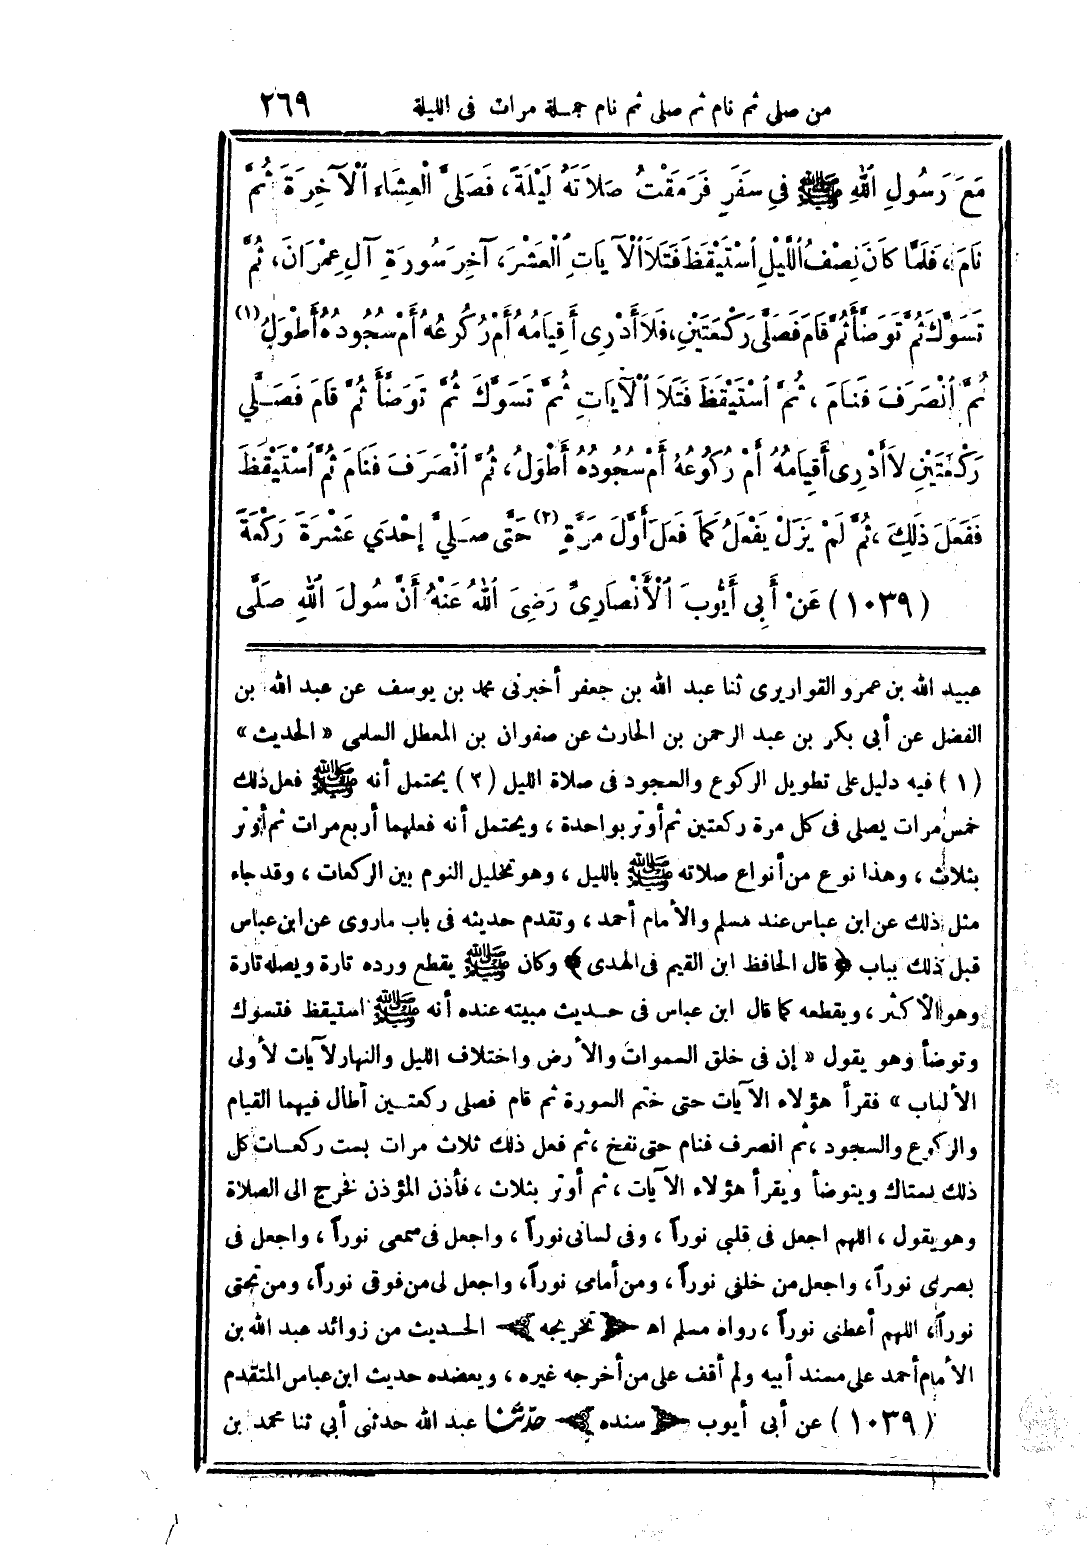 من صلى ثم نام ثم صلى ثم نام جملة مرات فى الليلة ٢٦٩
مَعَ رَسُولِ اللهِ ﷺ فِي سَفَرٍ فَرَمَقْتُ صَلَاتَهُ لَيْلَةً، فَصَلَّى الْعِشَاءَ الْآخِرَةَ ثُمَّ
نَامَ، فَلَمَّا كَانَ نِصْفُ اللَّيْلِ اسْتَيْقَظَ فَتَلَا الْآيَاتِ الْعَشْرَ، آخِرَ سُورَةِ آلِ عِمْرَانَ، ثُمَّ
تَسَوَّكَ ثُمَّ تَوَضَّأَ ثُمَّ قَامَ فَصَلَّى رَكْعَتَيْنِ، فَلَا أَدْرِى أَقِيَامُهُ أَمْ رُكُوعُهُ أَمْ سُجُودُهُ أَطْوَلُ (١)
ثُمَّ انْصَرَفَ فَنَامَ، ثُمَّ اسْتَيْقَظَ فَتَلَا الْآيَاتِ ثُمَّ تَسَوَّكَ ثُمَّ تَوَضَّأَ ثُمَّ قَامَ فَصَلَّى
رَكْعَتَيْنِ لَا أَدْرِى أَقِيَامُهُ أَمْ رُكُوعُهُ أَمْ سُجُودُهُ أَطْوَلُ، ثُمَّ انْصَرَفَ فَنَامَ ثُمَّ اسْتَيْقَظَ
فَفَعَلَ ذَلِكَ، ثُمَّ لَمْ يَزَلْ يَفْعَلُ كَمَا فَعَلَ أَوَّلَ مَرَّةٍ (٢) حَتَّى صَلَّى إِحْدَي عَشْرَةَ رَكْعَةً
(١٠٣٩) عَنْ أَبِي أَيُّوبَ الْأَنْصَارِىِّ رَضِيَ اللهُ عَنْهُ أَنَّ سُولَ اللهِ صَلَّى
عبيد الله بن عمرو القواريرى ثنا عبد الله بن جعفر أخبرنى محمد بن يوسف عن عبد الله بن
الفضل عن أبى بكر بن عبد الرحمن بن الحارث عن صفوان بن المعطل السلمى « الحديث »
(١) فيه دليل على تطويل الركوع والسجود فى صلاة الليل (٢) يحتمل أنه ﷺ فعل ذلك
خمس مرات يصلى فى كل مرة ركعتين ثم أوتر بواحدة، ويحتمل أنه فعلهما أربع مرات ثم أوتر
بثلاث، وهذا نوع من أنواع صلاته ﷺ بالليل، وهو تخليل النوم بين الركعات، وقد جاء
مثل ذلك عن ابن عباس عند مسلم والأمام أحمد، وتقدم حديثه فى باب ماروى عن ابن عباس
قبل ذلك بباب ﴿ قال الحافظ ابن القيم فى الهدى ﴾ وكان ﷺ يقطع ورده تارة ويصله تارة
وهو الأكثر، ويقطعه كما قال ابن عباس فى حديث مبيته عنده أنه ﷺ استيقظ فتسوك
وتوضأ وهو يقول « إن فى خلق السموات والأرض واختلاف الليل والنهار لآيات لأولى
الألباب » فقرأ هؤلاء الآيات حتى ختم السورة ثم قام فصلى ركعتين أطال فيهما القيام
والركوع والسجود، ثم انصرف فنام حتى نفخ، ثم فعل ذلك ثلاث مرات بست ركعات كل
ذلك يستاك ويتوضأ ويقرأ هؤلاء الآيات، ثم أوتر بثلاث، فأذن المؤذن فخرج الى الصلاة
وهو يقول، اللهم اجعل فى قلبى نوراً، وفى لسانى نوراً، واجعل فى سمعى نوراً، واجعل فى
بصرى نوراً، واجعل من خلفى نوراً، ومن أمامى نوراً، واجعل لى من فوقى نوراً، ومن تحتى
نوراً، اللهم أعطنى نوراً، رواه مسلم اه ﴿ تخريجه ﴾ الحديث من زوائد عبد الله بن
الأمام أحمد على مسند أبيه ولم أقف على من أخرجه غيره، ويعضده حديث ابن عباس المتقدم
(١٠٣٩) عن أبى أيوب ﴿ سنده ﴾ حدثنا عبد الله حدثنى أبي ثنا محمد بن